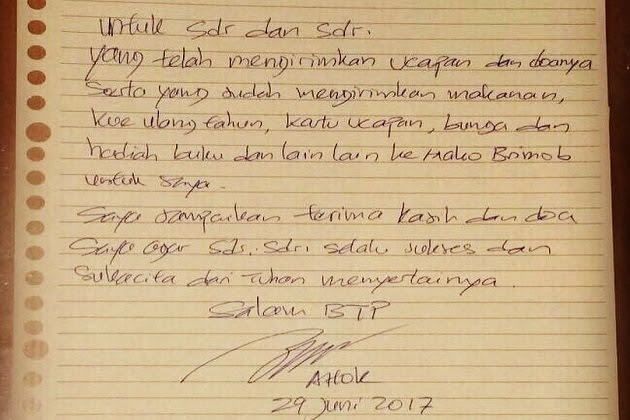 untuk sdr dan sdri.
yang telah mengirimkan ucapan dan doanya
serta yang sudah mengirimkan makanan,
kue ulang tahun, kartu ucapan, bunga dan
hadiah buku dan lain lain ke Mako Brimob
untuk saya.
Saya sampaikan terima kasih dan doa
saya agar sdr. sdri selalu sukses dan
sukacita dari Tuhan menyertainya.
Salam BTP
AHOK
29 Juni 2017